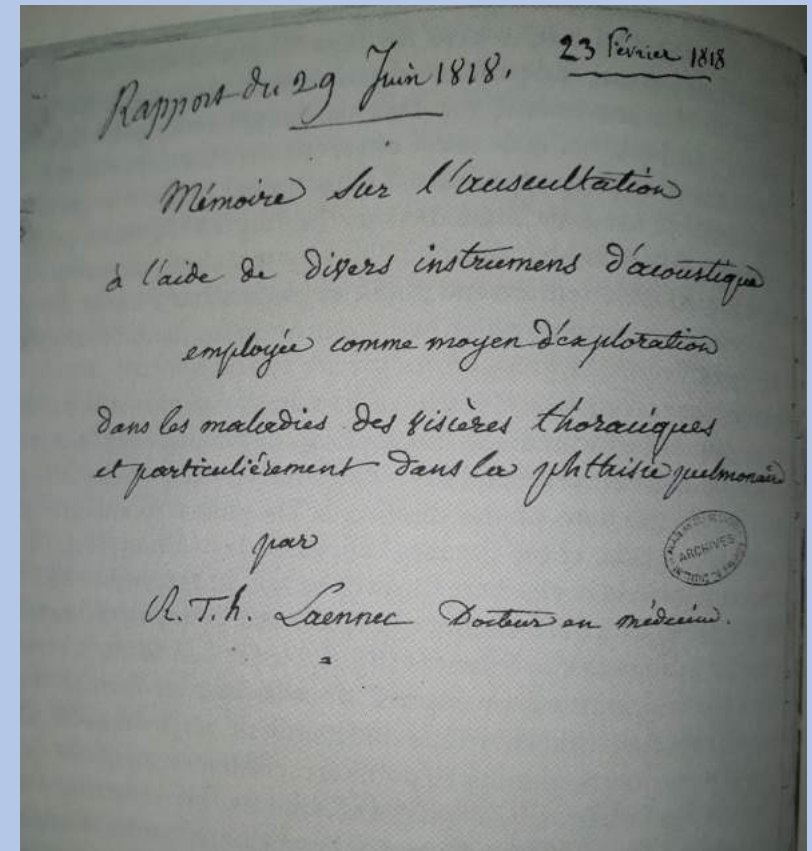 23 Février 1818
Rapport du 29 Juin 1818.
Mémoire sur l'auscultation
à l'aide de divers instrumens d'acoustique
employée comme moyen d'exploration
dans les maladies des viscères thoraciques
et particulièrement dans la phthisie pulmonaire
par
ARCHIVES
R. T. h. Laennec Docteur en médecine.